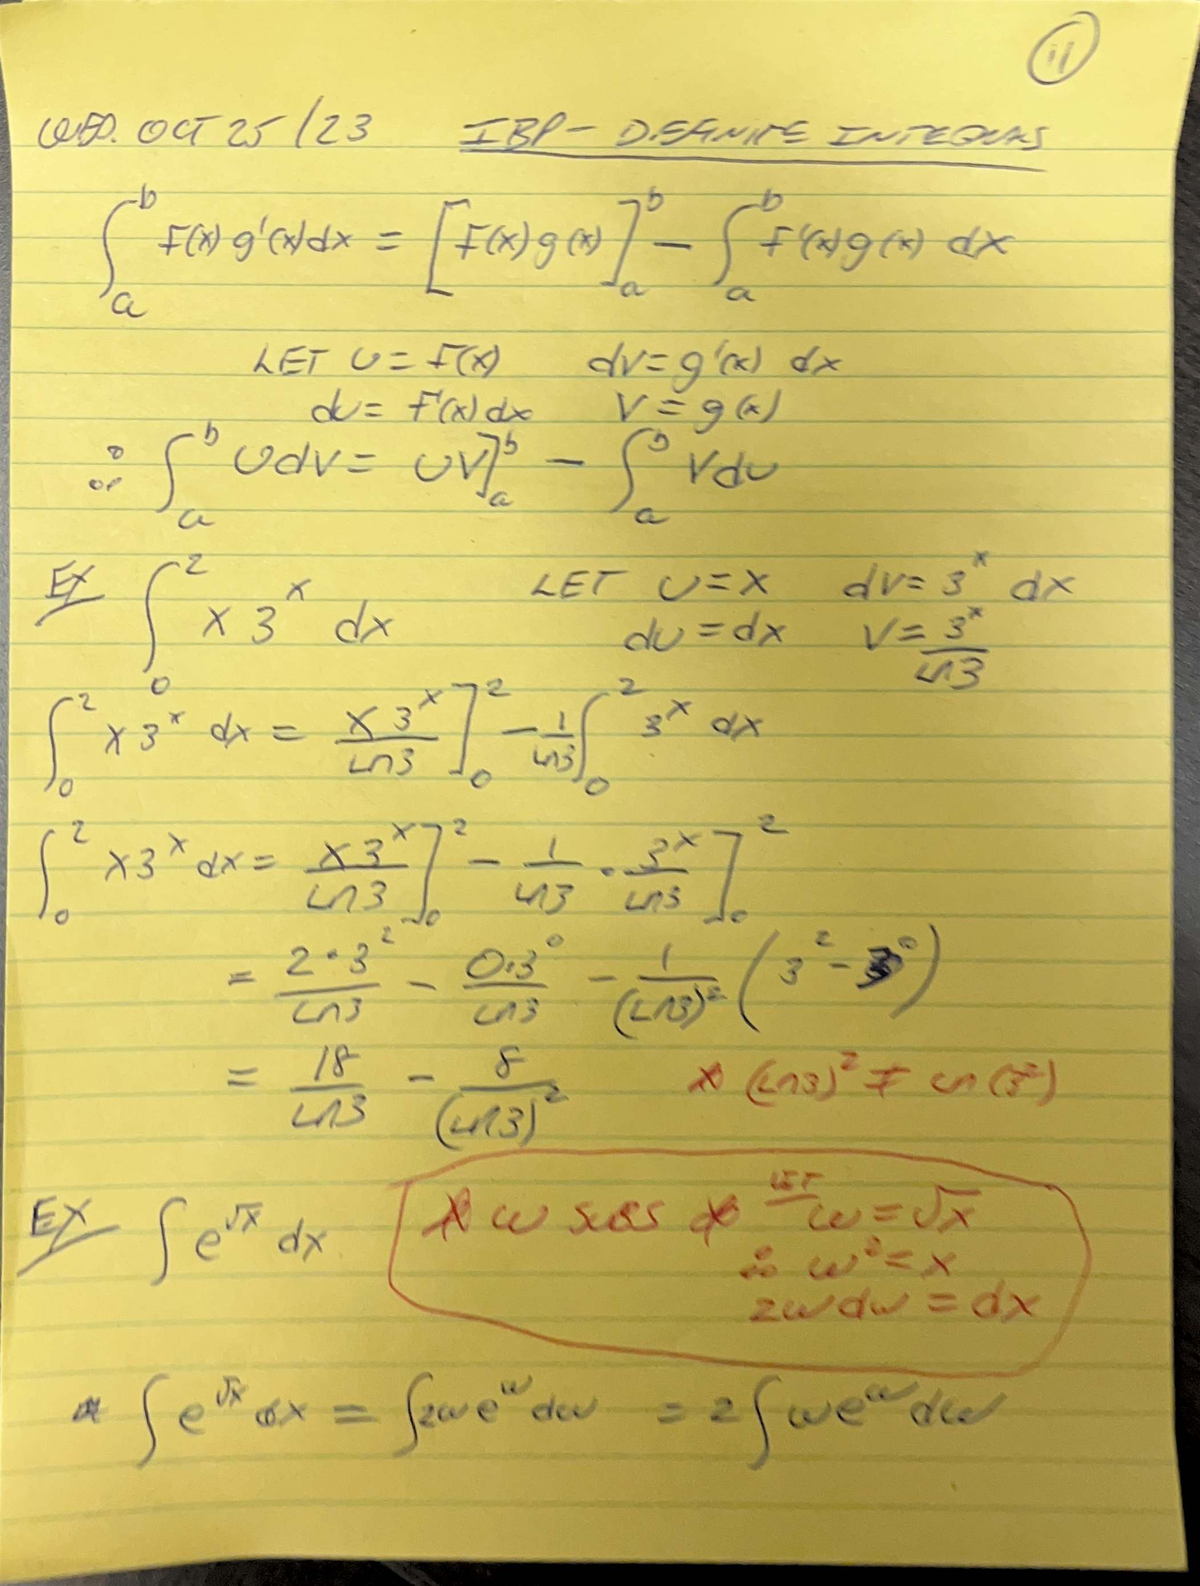 11
WED. OCT 25/23 IBP - DEFINITE INTEGRALS
∫_a^b F(x) g'(x) dx = [F(x) g(x)]_a^b - ∫_a^b F'(x) g(x) dx
LET U = F(x) dV = g'(x) dx
du = F'(x) dx V = g(x)
∴ or ∫_a^b U dV = UV]_a^b - ∫_a^b V du
EX ∫_0^2 x 3^x dx LET U = x dV = 3^x dx
du = dx V = 3^x / ln3
∫_0^2 x 3^x dx = x 3^x / ln3 ]_0^2 - 1/ln3 ∫_0^2 3^x dx
∫_0^2 x 3^x dx = x 3^x / ln3 ]_0^2 - 1/ln3 · 3^x / ln3 ]_0^2
= 2·3^2 / ln3 - 0·3^0 / ln3 - 1/(ln3)^2 (3^2 - 3^0)
= 18/ln3 - 8/(ln3)^2 * (ln3)^2 ≠ ln(3^2)
EX ∫ e^√x dx * W SUBS * LET w = √x
∴ w^2 = x
2w dw = dx
* ∫ e^√x dx = ∫ 2w e^w dw = 2 ∫ w e^w dw